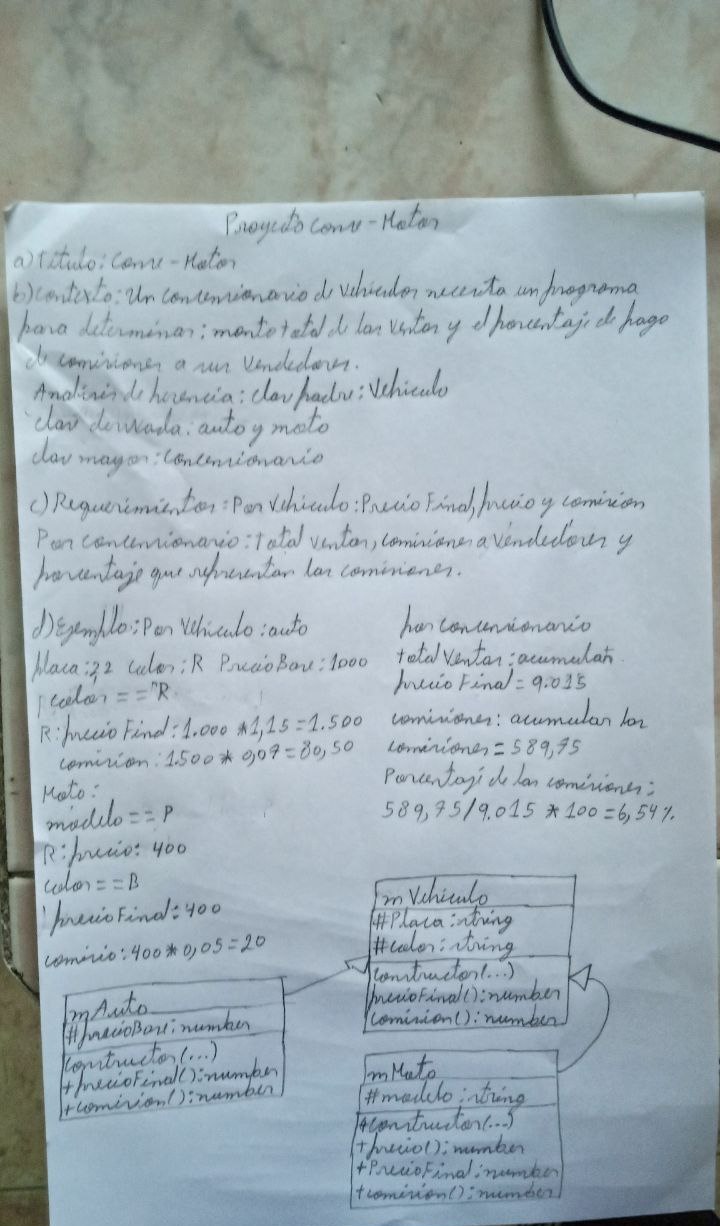 Proyecto Come-Motor
a) Título: Come-Motor
b) Contexto: Un concensionario de Vehiculos necesita un programa
para determinar: monto total de las Ventas y el porcentaje de pago
de comisiones a sus Vendedores.
Analisis de herencia: clase padre: Vehiculo
clase derivada: auto y moto
clase mayor: Concensionario
c) Requerimientos: Por Vehiculo: Precio Final, precio y comision
Por concensionario: total ventas, comisiones a Vendedores y
porcentaje que representan las comisiones.
d) Ejemplo: Por Vehiculo: auto
placa: 22 color: R Precio Base: 1000
color == "R
R: precio Final: 1.000 * 1,15 = 1.500
comision: 1.500 * 0,07 = 80,50
Moto:
modelo == P
R: precio: 400
color == B
precio Final: 400
comisio: 400 * 0,05 = 20
por concensionario
total Ventas: acumular
precio Final = 9.015
comisiones: acumular las
comisiones = 589,75
Porcentaje de las comisiones:
589,75 / 9.015 * 100 = 6,54%
m Vehiculo
#Placa: string
#color: string
constructor(...)
precioFinal(): number
comision(): number
mAuto
#precioBase: number
constructor(...)
+precioFinal(): number
+comision(): number
mMoto
#modelo: string
+constructor(...)
+precio(): number
+PrecioFinal: number
+comision(): number